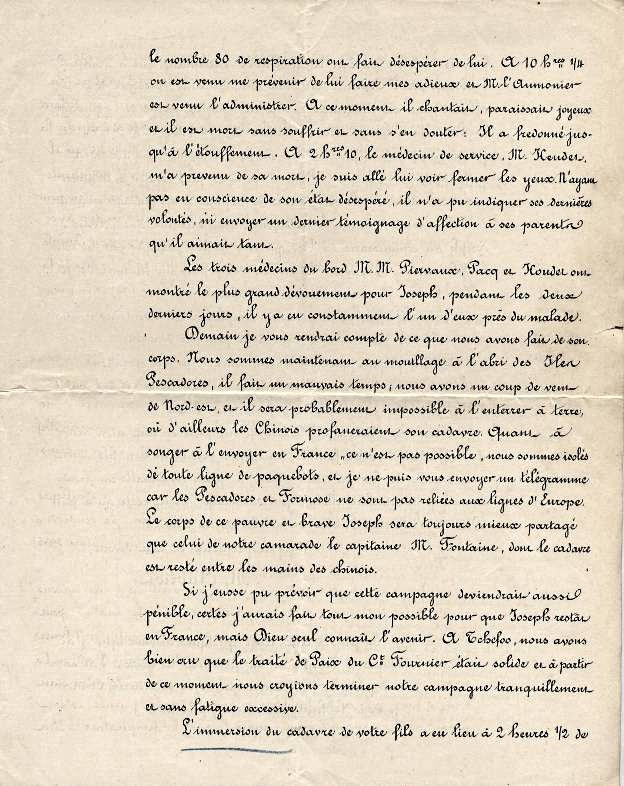 le nombre 80 de respiration ont fait désespérer de lui. A 10 hres 1/4
on est venu me prévenir de lui faire mes adieux et M. l'Aumonier
est venu l'administrer. A ce moment il chantait, paraissait joyeux
et il est mort sans souffrir et sans s'en douter: Il a fredonné jus-
qu'à l'étouffement. A 2 hres 10, le médecin de service, M. Houdet,
m'a prévenu de sa mort, je suis allé lui voir fermer les yeux. N'ayant
pas eu conscience de son état désespéré, il n'a pu indiquer ses dernières
volontés, ni envoyer un dernier témoignage d'affection à ses parents
qu'il aimait tant.
Les trois médecins du bord M.M. Piervaux, Pacq et Houdet ont
montré le plus grand dévouement pour Joseph, pendant les deux
derniers jours, il y a eu constamment l'un d'eux près du malade.
Demain je vous rendrai compte de ce que nous avons fait de son
corps. Nous sommes maintenant au mouillage à l'abri des Iles
Pescadores, il fait un mauvais temps; nous avons un coup de vent
de Nord-est, et il sera probablement impossible à l'enterrer à terre,
où d'ailleurs les Chinois profaneraient son cadavre. Quant à
songer à l'envoyer en France, ce n'est pas possible, nous sommes isolés
de toute ligne de paquebots, et je ne puis vous envoyer un télégramme
car les Pescadores et Formose ne sont pas reliées aux lignes d'Europe.
Le corps de ce pauvre et brave Joseph sera toujours mieux partagé
que celui de notre camarade le capitaine M. Fontaine, dont le cadavre
est resté entre les mains des chinois.
Si j'eusse pu prévoir que cette campagne deviendrait aussi
pénible, certes j'aurais fait tout mon possible pour que Joseph restât
en France, mais Dieu seul connaît l'avenir. A Tchefoo, nous avons
bien cru que le traité de Paix du Ct Fournier était solide et à partir
de ce moment nous croyions terminer notre campagne tranquillement
et sans fatigue excessive.
L'immersion du cadavre de votre fils a eu lieu à 2 heures 1/2 de